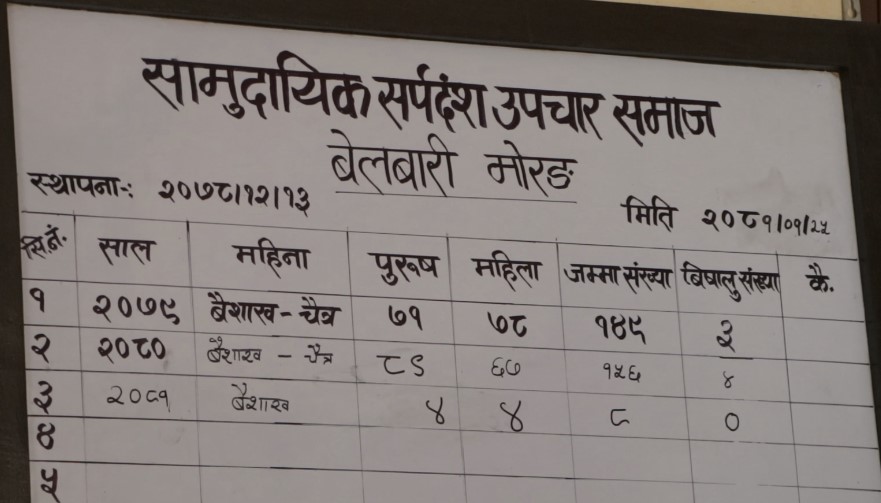 सामुदायिक सर्पदंश उपचार समाज
बेलबारी मोरङ
स्थापना-: २०७८।१२।१३
मिति २०८१।०१।२५
सि.नं. साल महिना पुरूष महिला जम्मा संख्या बिषालु संख्या कै.
१ २०७९ बैशाख - चैत्र ७१ ७८ १४९ ३
२ २०८० बैशाख - चैत्र ८९ ६७ १५६ ४
३ २०८१ बैशाख ४ ४ ८ ०
४
५